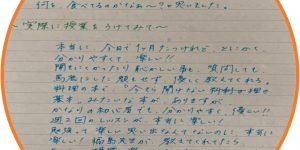 何を、食べてるのかなぁ〜?と思いました。
実際に授業をうけてみて〜
本当に、今日で1ヶ月たつけれど、とにかく、
分かりやすくて、楽しい!!
聞きにくかったり恥ずかしい事も、質問しても
馬鹿にした顔もせず、優しく教えてくれる。
料理の本で、"今さら聞けない
基本" みたいな本が、ありますが
かなりの初心者でも、分かりやすく、優しい!!
週2回のレッスンが、本当に楽しい!
勉強って楽しい思い出なんてないのに、本当に
楽しい! 福島先生が、教えてくれてたら